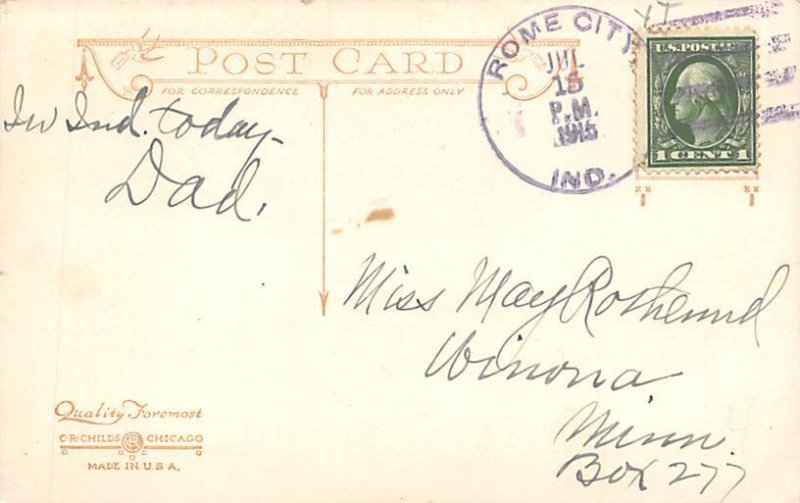 POST CARD
FOR CORRESPONDENCE
FOR ADDRESS ONLY
ROME CITY,
JUL
13
P.M.
1915
IND.
U.S. POST
1 CENT 1
In Ind. today-
Dad.
Miss May Rothermd
Winona
Minn.
Box 277
Quality Foremost
C.R. CHILDS CHICAGO
MADE IN U.S.A.